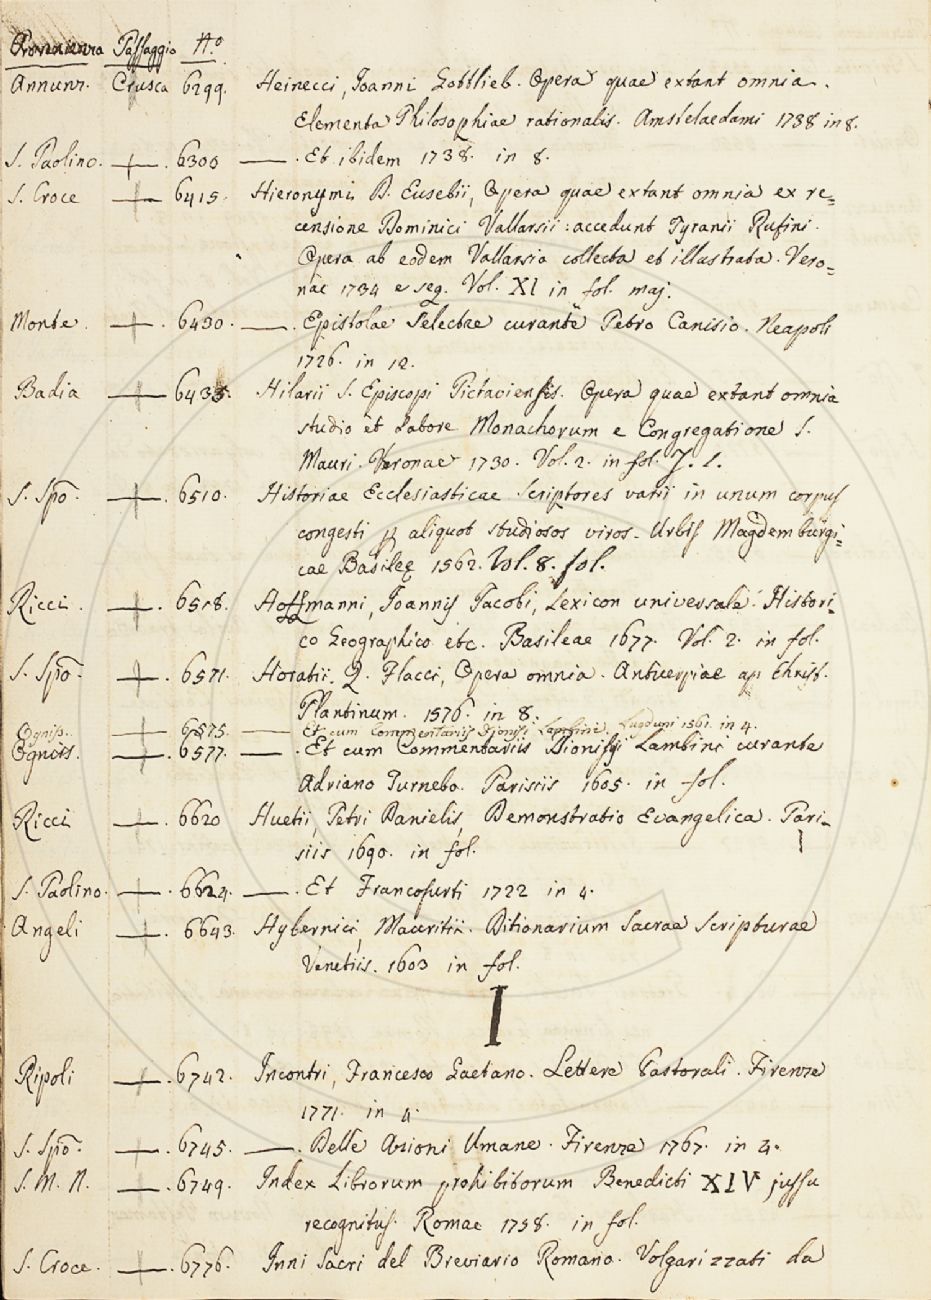 Provenienza Passaggio N.º
Annunz. Crusca 6299. Heinecci, Joanni Gottlieb. Opera quae extant omnia.
Elementa Philosophiae rationalis. Amstelaedami 1738 in 8.
S. Paolino. —— . 6300 —— . Et ibidem 1738. in 8.
S. Croce —— 6415. Hieronymi D. Eusebii, Opera quae extant omnia ex re=
censione Dominici Vallarsii: accedunt Tyranii Rufini.
Opera ab eodem Vallarsia collecta et illustrata. Vero=
nae 1734 e seg. Vol. XI in fol. maj.
Monte. —— . 6430. —— . Epistolae Selectae curante Petro Canisio. Neapoli
1726. in 12.
Badia —— 6435. Hilarii S. Episcopi Pictaviensis. Opera quae extant omnia
studio et labore Monachorum e Congregatione S.
Mauri. Veronae 1730. Vol. 2. in fol.
S. Spō. —— . 6510. Historiae Ecclesiasticae Scriptores varii in unum corpus
congesti p aliquot studiosos viros. Urbis Magdemburgi=
cae Basileę 1562. Vol. 8. fol.
Ricci. —— . 6518. Hoffmanni, Joannis Jacobi, Lexicon universale. Histori=
co Geographico etc. Basileae 1677. Vol. 2. in fol.
S. Spō. —— . 6571. Horatii. Q. Flacci, Opera omnia. Antuerpiae ap Christ.
Plantinum. 1576. in 8.
Ogniss. —— 6575. —— Et cum Commentariis Dionisi Lambini, Lugduni 1561. in 4.
Ogniss. —— . 6577. —— . Et cum Commentariis Dionisji Lambini curante
Adriano Turnebo. Parisiis 1605. in fol.
Ricci —— . 6620 Huetii, Petri Danielis, Demonstratio Evangelica. Pari=
siis 1690. in fol.
S. Paolino. —— . 6624. —— . Et Francofurti 1722 in 4.
Angeli —— . 6643. Hybernici, Mauritii. Ditionarium Sacrae Scripturae
Venetiis. 1603 in fol.
I
Ripoli —— . 6742. Incontri, Francesco Gaetano. Lettere Pastorali. Firenze
1771. in 4.
S. Spō. —— . 6745. —— . Delle Azioni Umane. Firenze 1767. in 4.
S. M. N. —— . 6749. Index Librorum prohibitorum Benedicti XIV jussu
recognitus. Romae 1758. in fol.
S. Croce. —— . 6776. Inni Sacri del Breviario Romano. Volgarizzati da